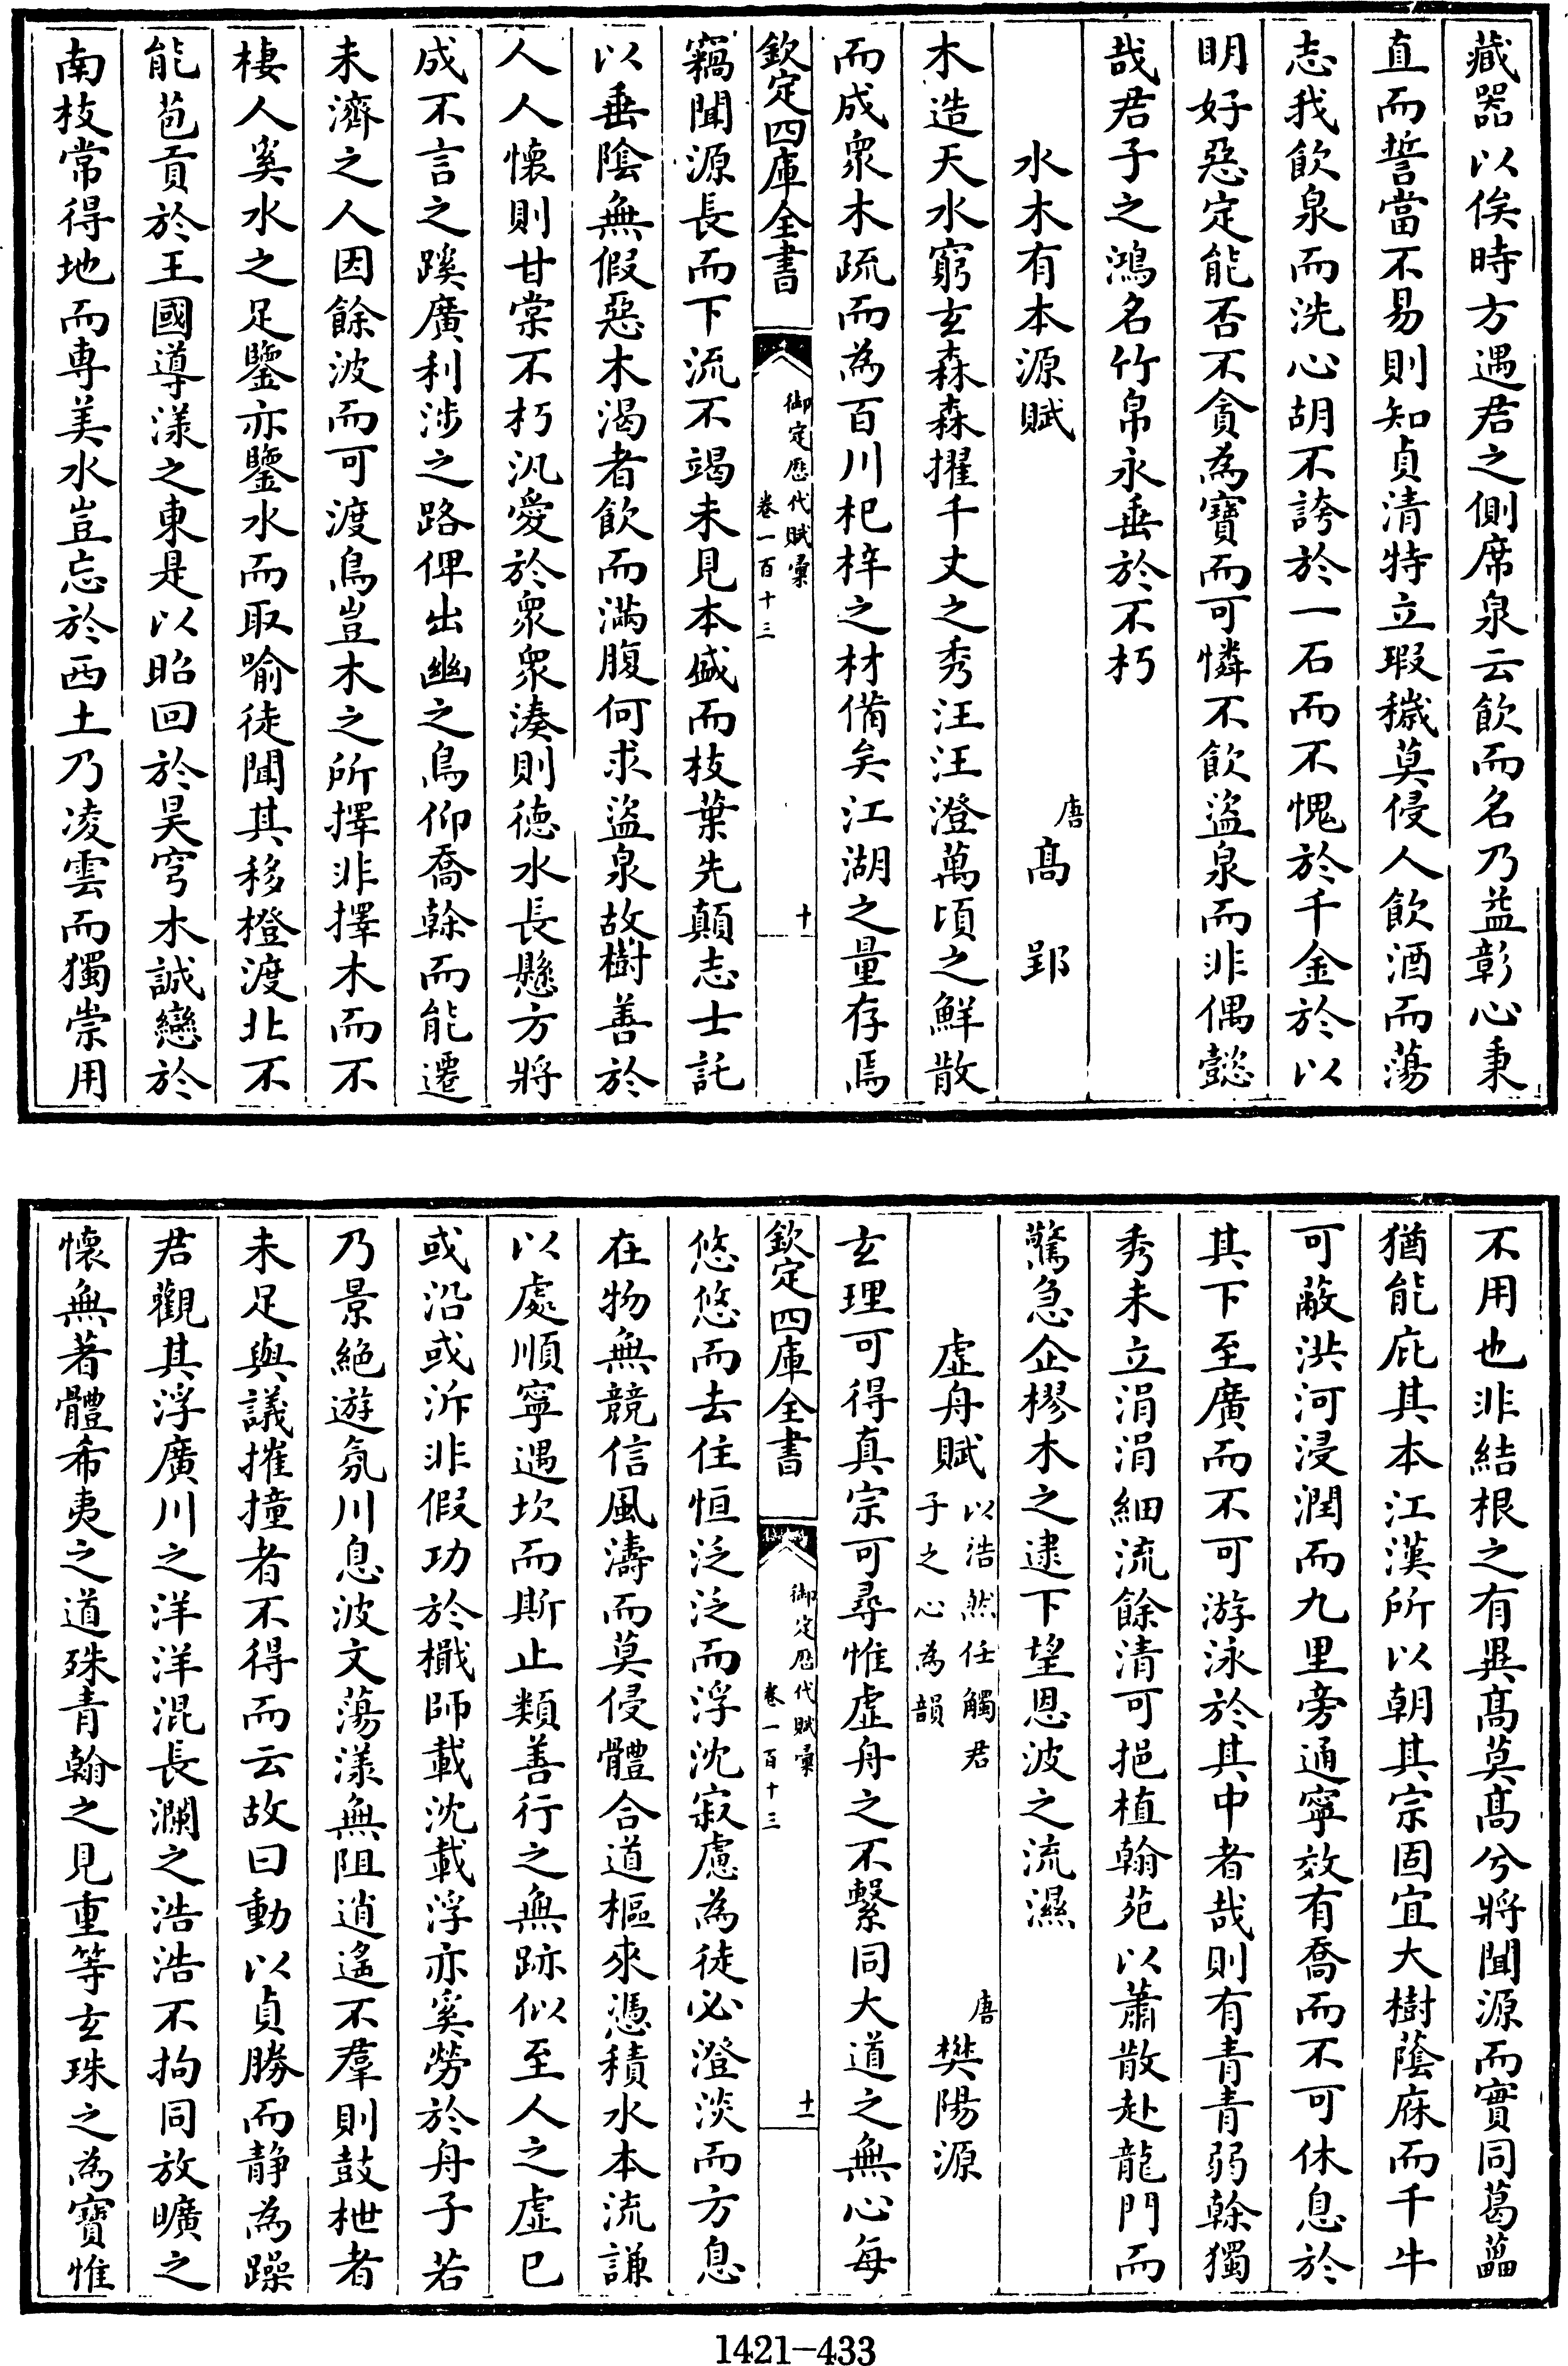 藏器以俟時方遇君之側席泉云飲而名乃益彰心秉
直而誓當不易則知貞清特立瑕穢莫侵人飲酒而蕩
志我飲泉而洗心胡不誇於一石而不愧於千金於以
明好惡定能否不貪為寶而可憐不飲盜泉而非偶懿
哉君子之鴻名竹帛永垂於不朽
水木有本源賦 唐 高郢
木造天水窮玄森森擢千丈之秀汪汪澄萬頃之鮮散
而成衆木疏而為百川杞梓之材備矣江湖之量存焉
欽定四庫全書 御定歷代賦彙 卷一百十三 十
竊聞源長而下流不竭未見本盛而枝葉先顛志士託
以垂陰無假惡木渴者飲而滿腹何求盜泉故樹善於
人人懷則甘棠不朽汎愛於衆衆湊則德水長懸方將
成不言之蹊廣利涉之路俾出幽之鳥仰喬榦而能遷
未濟之人因餘波而可渡鳥豈木之所擇非擇木而不
棲人奚水之足鑒亦鑒水而取喻徒聞其移橙渡北不
能苞貢於王國導漾之東是以昭回於昊穹木誠戀於
南枝常得地而專美水豈忘於西土乃凌雲而獨崇用
不用也非結根之有異高莫高兮將聞源而實同葛藟
猶能庇其本江漢所以朝其宗固宜大樹蔭庥而千牛
可蔽洪河浸潤而九里旁通寧效有喬而不可休息於
其下至廣而不可游泳於其中者哉則有青青弱榦獨
秀未立涓涓細流餘清可挹植翰苑以蕭散赴龍門而
驚急企樛木之逮下望恩波之流濕
虛舟賦 以浩然任觸君子之心為韻 唐 樊陽源
玄理可得真宗可尋惟虛舟之不繫同大道之無心每
欽定四庫全書 御定歷代賦彙 卷一百十三 十一
悠悠而去住恒泛泛而浮沈寂慮為徒必澄淡而方息
在物無競信風濤而莫侵體合道樞來憑積水本流謙
以處順寧遇坎而斯止類善行之無跡似至人之虛已
或沿或泝非假功於檝師載沈載浮亦奚勞於舟子若
乃景絕遊氛川息波文蕩漾無阻逍遙不羣則鼓枻者
未足與議摧撞者不得而云故曰動以貞勝而靜為躁
君觀其浮廣川之洋洋混長瀾之浩浩不拘同放曠之
懷無著體希夷之道殊青翰之見重等玄珠之為寶惟
1421-433